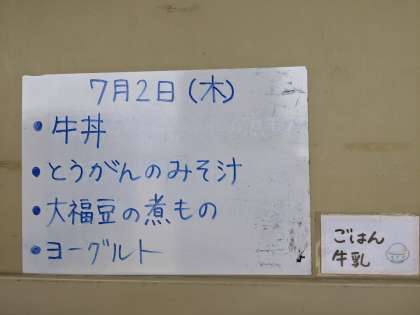 7月2日(木)
•牛丼
•とうがんのみそ汁
•大福豆の煮もの
•ヨーグルト
ごはん
牛乳